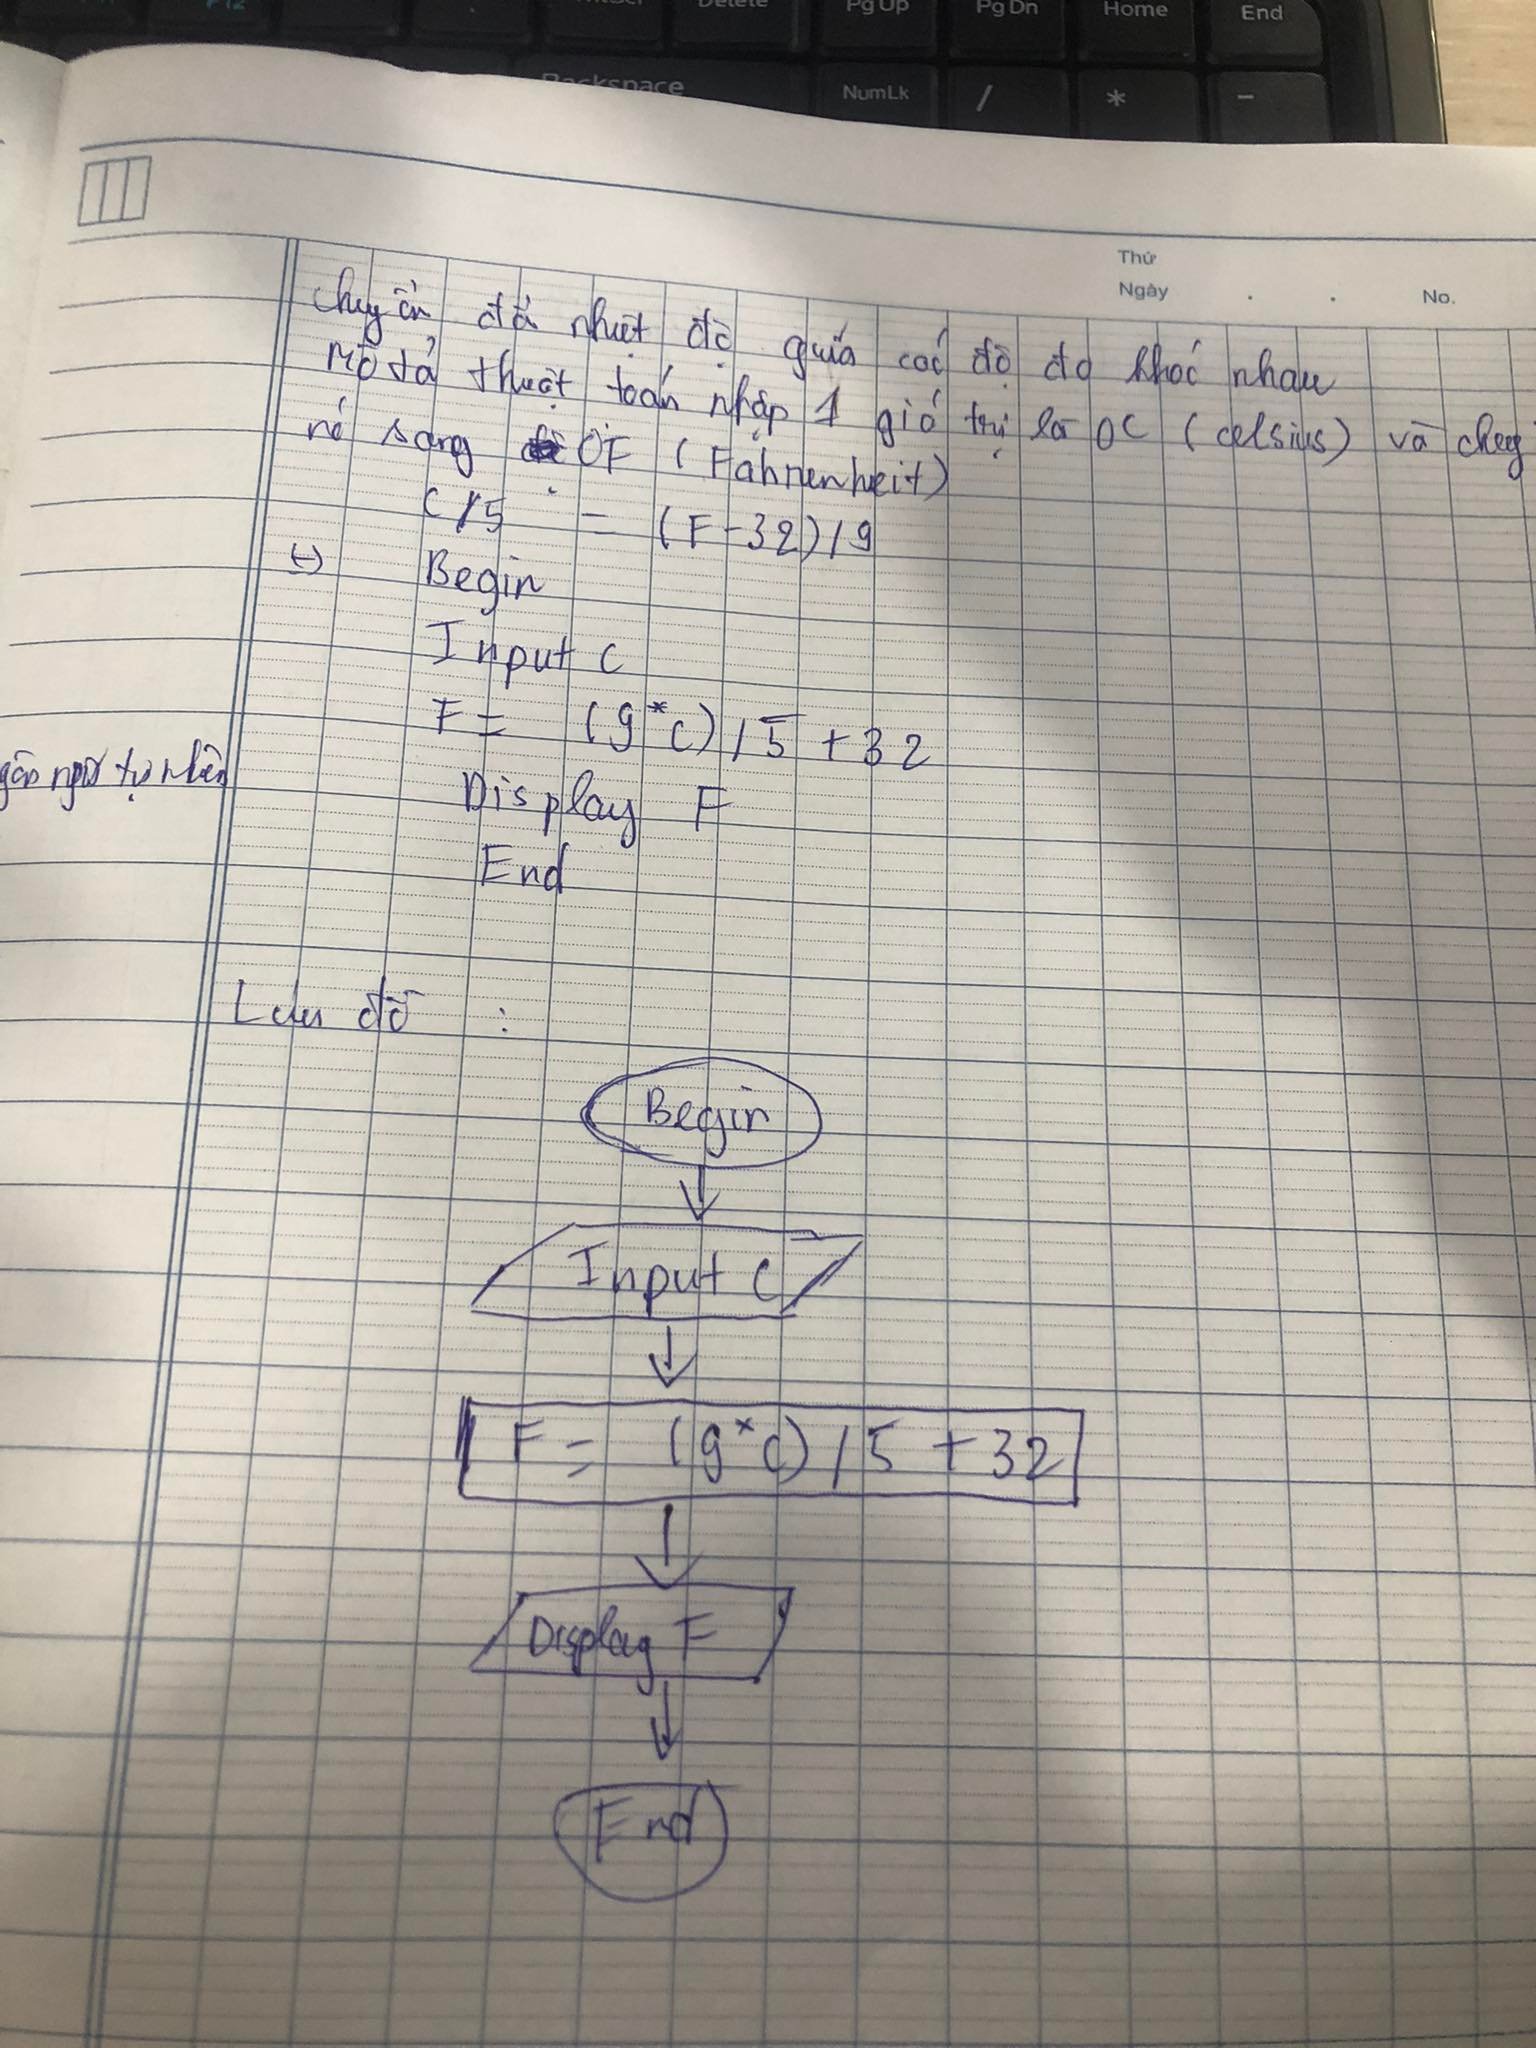 Delete
PgUp
PgDn
Home
End
Backspace
NumLk
/
*
-
Thứ
Ngày . . No.
Chuyển đổi nhiệt độ giữa các độ đo khác nhau
Mô tả thuật toán nhập 1 giá trị là OC (celsius) và
nó sang OF (Fahrenheit)
C/5 = (F-32)/9
Begin
Input C
F = (9*C)/5 + 32
ngữ tự nhiên
Display F
End
Lưu đồ :
Begin
Input C
F = (9*C)/5 + 32
Display F
End